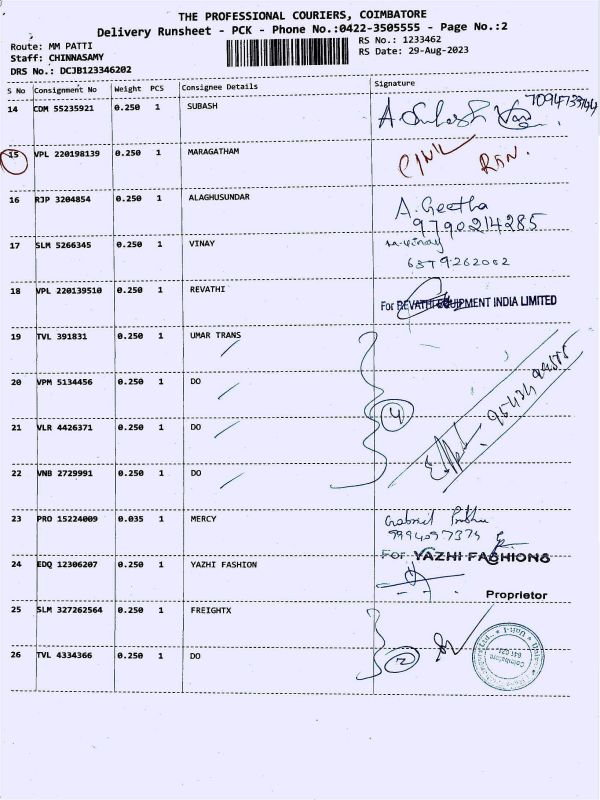 THE PROFESSIONAL COURIERS, COIMBATORE
Delivery Runsheet - PCK - Phone No.:0422-3505555 - Page No.:2
Route: MM PATTI
Staff: CHINNASAMY
DRS No.: DCJB123346202
RS No.: 1233462
RS Date: 29-Aug-2023
S No Consignment No Weight PCS Consignee Details Signature
14 CDM 55235921 0.250 1 SUBASH A. Subash
15 VPL 220198139 0.250 1 MARAGATHAM
16 RJP 3204854 0.250 1 ALAGHUSUNDAR A. Geetha
9790214285
17 SLM 5266345 0.250 1 VINAY m.vinay
6379262002
18 VPL 220139510 0.250 1 REVATHI For REVATHI EQUIPMENT INDIA LIMITED
19 TVL 391831 0.250 1 UMAR TRANS
20 VPM 5134456 0.250 1 DO 4
21 VLR 4426371 0.250 1 DO
22 VNB 2729991 0.250 1 DO
23 PRO 15224009 0.035 1 MERCY Gabriel Prabhu
9994097374
For YAZHI FASHIONS
24 EDQ 12306207 0.250 1 YAZHI FASHION
Proprietor
25 SLM 327262564 0.250 1 FREIGHTX
26 TVL 4334366 0.250 1 DO 2
Coimbatore
641 021
Unit-I